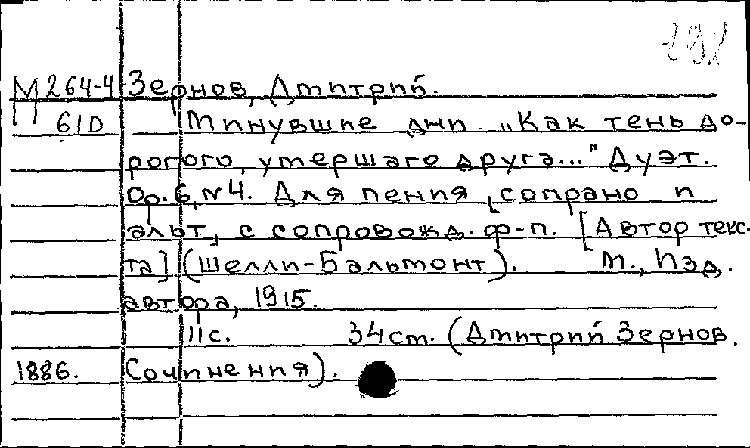 М 264-4 Зернов, Дмитрий.
610 Минувшие дни „Как тень до-
рогого, умершаго друга..." Дуэт.
Op. 6, N 4. Для пения [сопрано и
альт, с сопровожд. ф-п. [Автор текс-
та] (Шелли-Бальмонт). М., Изд.
автора, 1915.
11 с. 34 см. (Дмитрий Зернов.
1886. Сочинения).